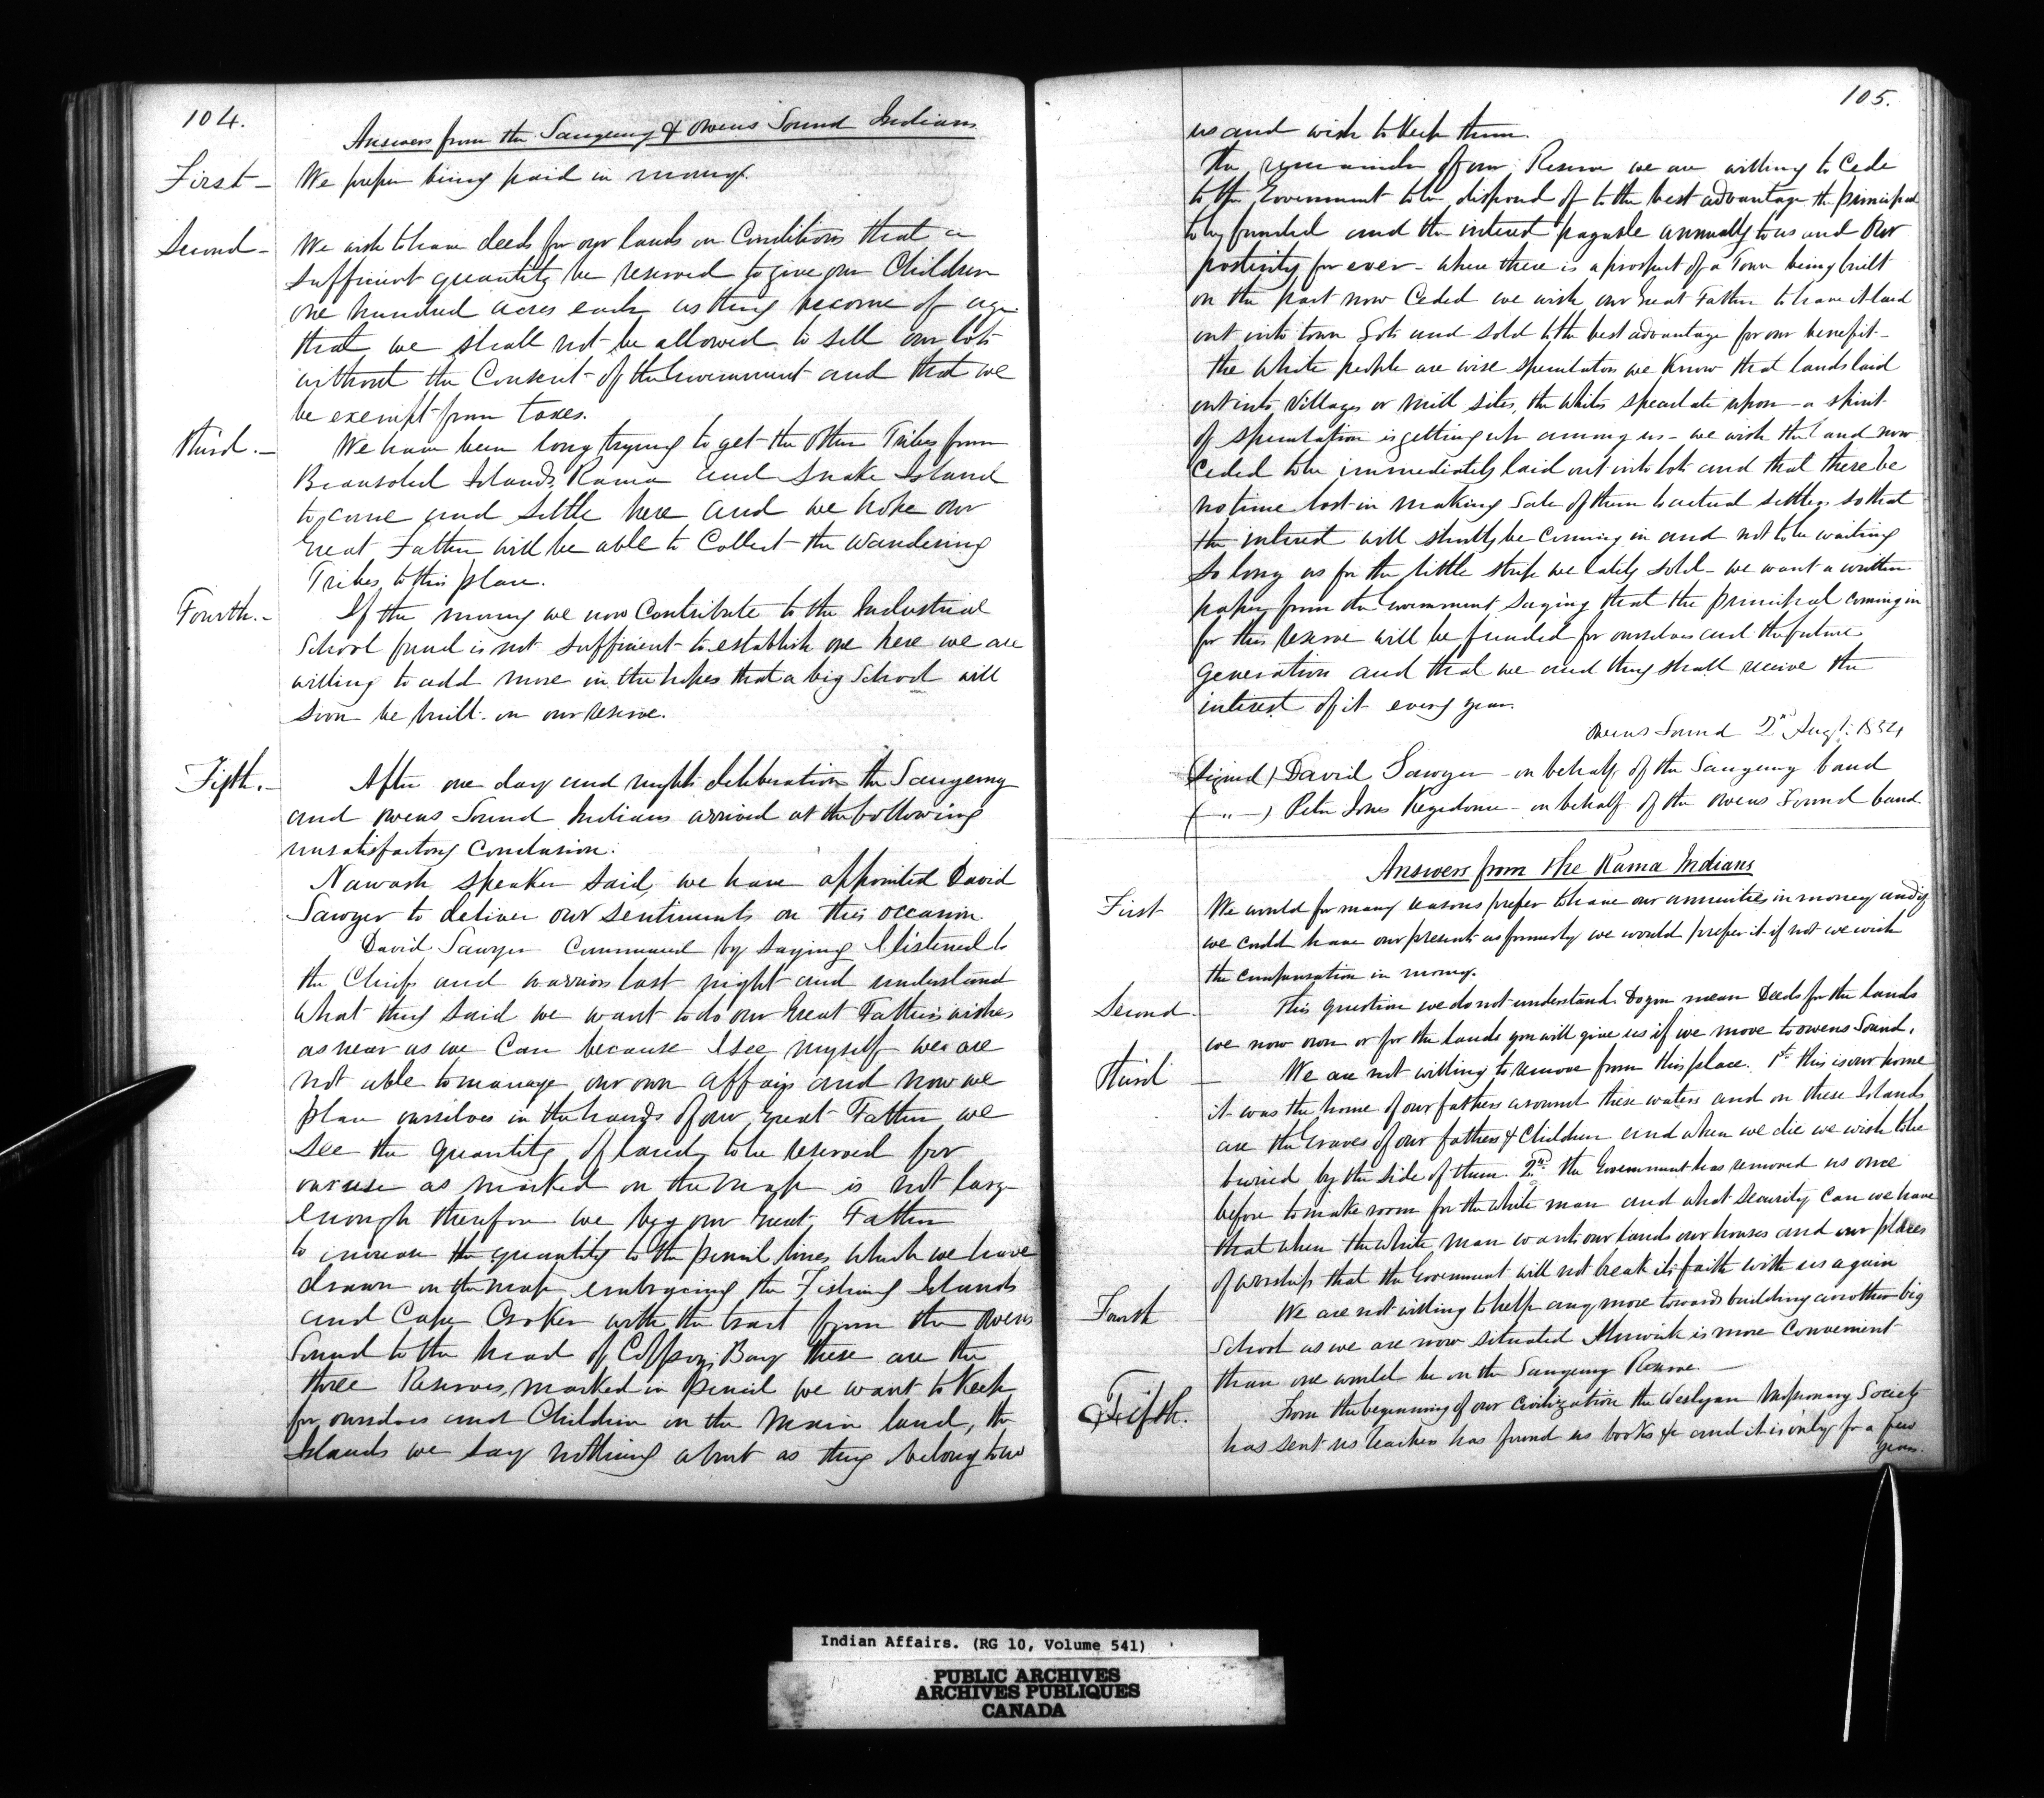 104.
Answers from the Saugeeng & Owens Sound Indians
First - We prefer being paid in money.
Second - We wish to have deeds for our lands on Conditions that a
sufficient quantity be reserved to give our Children
one hundred acres each as they become of age
that we shall not be allowed to sell our lots
without the Consent of the Government and that we
be exempt from taxes.
Third. - We have been long trying to get the other Tribes from
Beausoled Islands, Rama and Snake Island
to come and settle here and we hope our
Great Father will be able to Collect the wandering
Tribes to this place.
Fourth. - If the money we now Contribute to the Industrial
School fund is not sufficient to establish one here we are
willing to add more in the hopes that a big School will
soon be built on our reserve.
Fifth. - After one day and nights deliberation the Saugeeng
and Owens Sound Indians arrived at the following
unsatisfactory Conclusion:
Nawash speaker said, we have appointed David
Sawyer to deliver our sentiments on this occasion.
David Sawyer Commenced by saying I listened to
the Chiefs and warriors last night and understand
what they said we want to do our Great Father's wishes
as near as we Can because I see myself we are
not able to manage our own affairs and now we
place ourselves in the hands of our Great Father we
see the quantity of land to be reserved for
our use as marked on the map is not large
enough therefore we beg our Great Father
to increase the quantity to the pencil lines which we have
drawn on the map embracing the Fishing Islands
and Cape Croker with the tract from the Owens
Sound to the head of Colpoys Bay these are the
three Reserves marked in pencil we want to keep
for ourselves and Children on the main land, the
Islands we say nothing about as they belong to us
105.
us and wish to keep them.
The remainder of our Reserve we are willing to Cede
to the Government to be disposed of to the best advantage the principal
to be funded and the interest payable annually to us and our
posterity for ever - where there is a prospect of a Town being built
on the part now Ceded we wish our Great Father to have it laid
out into town Lots and sold to the best advantage for our benefit -
The White people are wise speculators we know that lands laid
out into Villages or mill sites, the whites speculate upon - a spirit
of speculation is getting up among us - we wish the land now
Ceded to be immediately laid out into lots and that there be
no time lost in making Sale of them to actual settlers so that
the interest will shortly be Coming in and not to be waiting
so long as for the little strip we lately sold - we want a written
paper from the Government saying that the principal coming in
for this reserve will be funded for ourselves and the future
Generation and that we and they shall receive the
interest of it every year.
Owens Sound 2nd Augt. 1854
(Signed) David Sawyer - on behalf of the Saugeeng band
( " ) Peter Jones Kegedonce - on behalf of the Owens Sound band
Answers from the Rama Indians
First We would for many reasons prefer to have our annuities in money and if
we could have our presents as formerly we would prefer it if not we wish
the compensation in money.
Second - This question we do not understand. Do you mean Deeds for the lands
we now own or for the lands you will give us if we move to Owens Sound.
Third - We are not willing to remove from this place. 1st. this is our home
it was the home of our fathers around these waters and on these Islands
are the Graves of our fathers & Children and when we die we wish to be
buried by the side of them. 2nd. the Government has removed us once
before to make room for the white man and what security Can we have
that when the white man wants our lands our houses and our places
of worship that the Government will not break its faith with us again
Fourth We are not willing to help any more towards building another big
School as we are now situated Alnwick is more Convenient
than one would be on the Saugeeng Reserve. -
Fifth. From the beginning of our Civilization the Weslyan Missionary Society
has sent us teachers has found us books &c and it is only for a few
years.
Indian Affairs. (RG 10, Volume 541)
PUBLIC ARCHIVES
ARCHIVES PUBLIQUES
CANADA